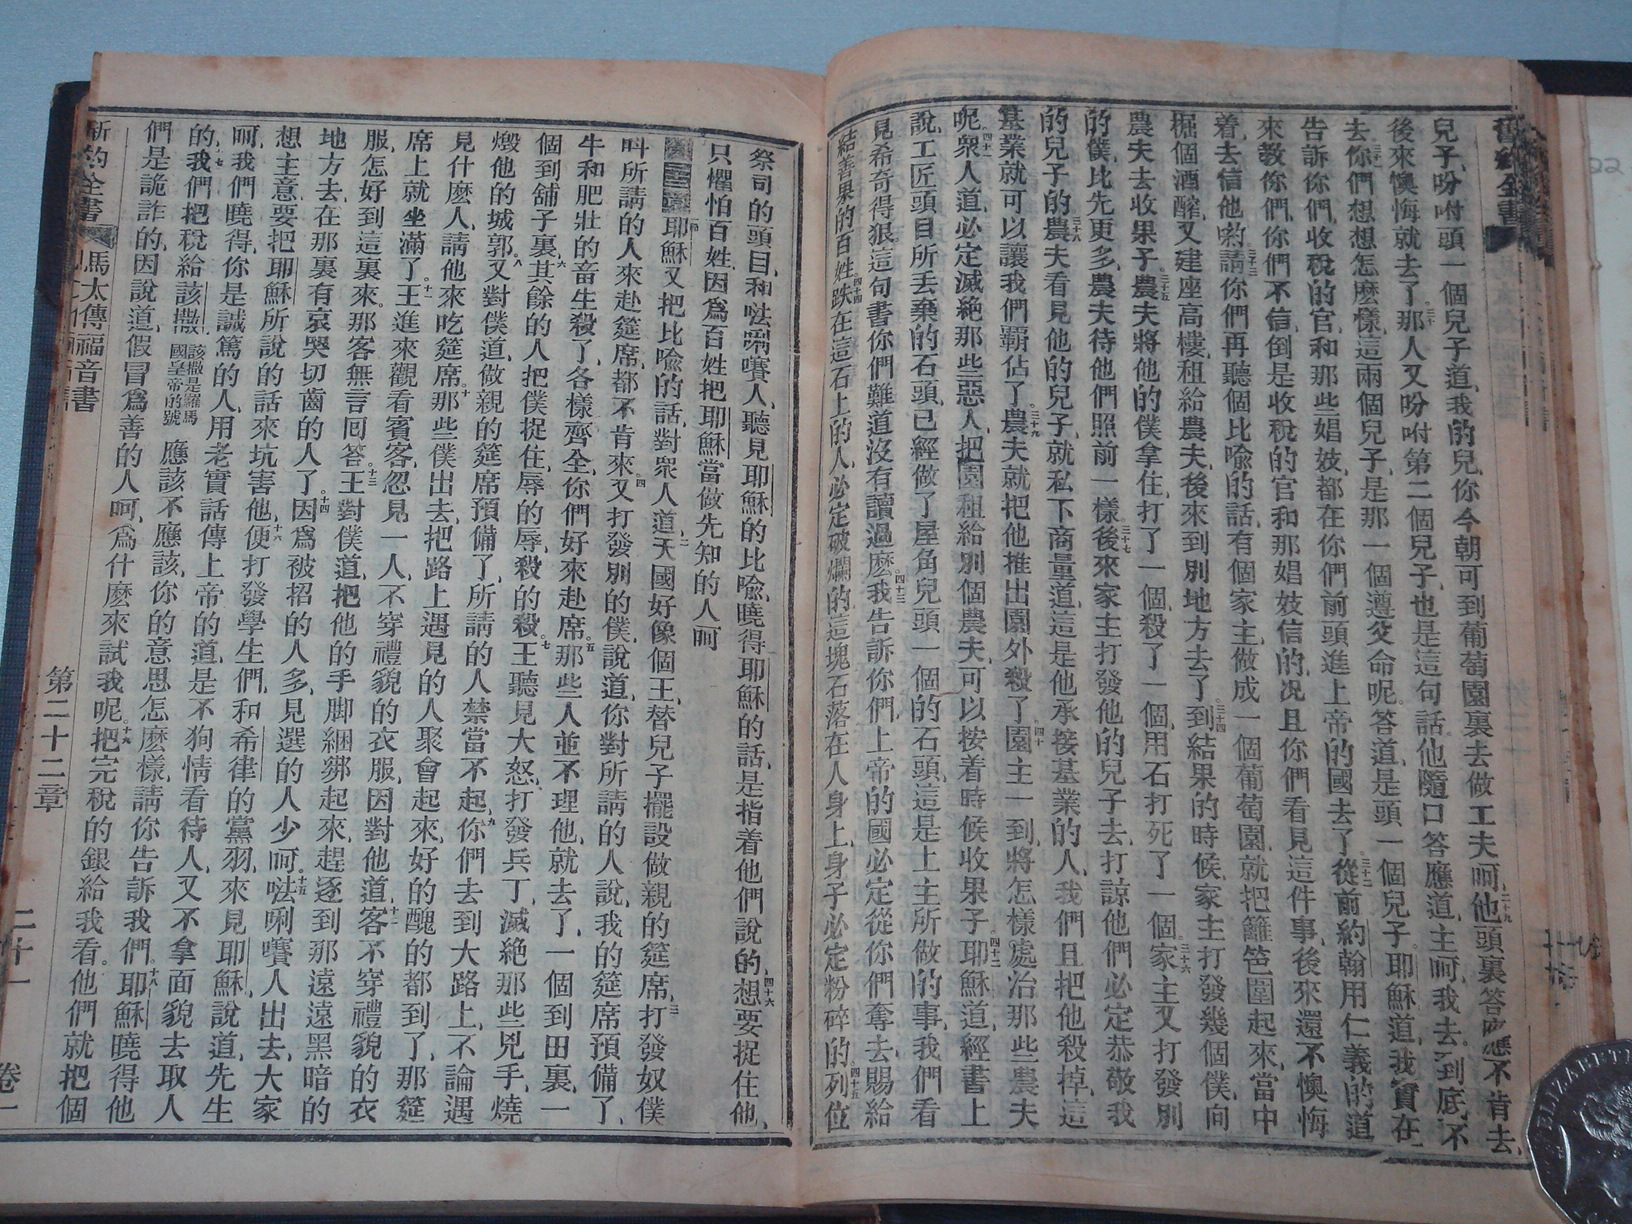 兒子、吩咐頭一個兒子道、我的兒、你今朝可到葡萄園裏去做工夫呵、二十九他頭裏答應不肯去、
後來懊悔就去了。三十那人又吩咐第二個兒子、也是這句話。他隨口答應道、主呵、我去。到底不
去。三十一你們想想怎麽樣、這兩個兒子、是那一個遵父命呢。答道、是頭一個兒子。耶穌道、我實在
告訴你們、收稅的官、和那些娼妓、都在你們前頭進上帝的國去了。三十二從前約翰用仁義的道
來教你們、你們不信、倒是收稅的官和那娼妓信的、况且你們看見這件事、後來還不懊悔
着、去信他喲。三十三請你們再聽個比喻的話、有個家主、做成一個葡萄園、就把籬笆圍起來、當中
掘個酒醡、又建座高樓、租給農夫、後來到別地方去了。三十四到結果的時候、家主打發幾個僕、向
農夫去收果子。三十五農夫將他的僕拿住、打了一個、殺了一個、用石打死了一個。三十六家主又打發別
的僕、比先更多、農夫待他們照前一樣。三十七後來家主打發他的兒子去、打諒他們必定恭敬我
的兒子的。三十八農夫看見他的兒子、就私下商量道、這是他承接基業的人、我們且把他殺掉、這
基業就可以讓我們霸佔了。三十九農夫就把他推出園外殺了。四十園主一到、將怎樣處治那些農夫
呢。四十一衆人道、必定滅絕那些惡人、把園租給別個農夫、可以按着時候收果子。四十二耶穌道、經書上
說、工匠頭目所丟棄的石頭、已經做了屋角兒頭一個的石頭、這是上主所做的事、我們看
見希奇得狠。這句書你們難道沒有讀過麽。四十三我告訴你們、上帝的國必定從你們奪去、賜給
結善果的百姓。四十四跌在這石上的人、必定破爛的、這塊石落在人身上、身子必定粉碎的。四十五列位
祭司的頭目、和𠵽唎賽人、聽見耶穌的比喻、曉得耶穌的話、是指着他們說的。四十六想要捉住他、
只懼怕百姓、因爲百姓把耶穌當做先知的人呵
耶穌又把比喻的話、對衆人道、二天國好像個王、替兒子擺設做親的筵席、三打發奴僕
呌所請的人來赴筵席、都不肯來。四又打發別的僕、說道、你對所請的人說、我的筵席預備了、
牛和肥壯的畜生殺了、各樣齊全、你們好來赴席。五那些人並不理他、就去了、一個到田裏、一
個到舖子裏。六其餘的人、把僕捉住、辱的辱、殺的殺。七王聽見大怒、打發兵丁、滅絕那些兇手、燒
燬他的城郭。八又對僕道、做親的筵席預備了、所請的人、禁當不起。九你們去到大路上、不論遇
見什麽人、請他來吃筵席。十那些僕出去、把路上遇見的人聚會起來、好的醜的都到了、那筵
席上就坐滿了。十一王進來觀看賓客、忽見一人、不穿禮貌的衣服、因對他道、十二客不穿禮貌的衣
服、怎好到這裏來。那客無言囘答。十三王對僕道、把他的手脚綑綁起來、趕逐到那遠遠黑暗的
地方去、在那裏有哀哭切齒的人了。十四因爲被招的人多、見選的人少呵。十五𠵽唎賽人出去、大家
想主意、要把耶穌所說的話來坑害他。十六便打發學生們、和希律的黨羽、來見耶穌、說道、先生
呵、我們曉得、你是誠篤的人、用老實話傳上帝的道、是不狥情看待人、又不拿面貌去取人
的。十七我們把稅給該撒、該撒是羅馬國皇帝的號應該不應該、你的意思怎麽樣、請你告訴我們。十八耶穌曉得他
們是詭詐的、因說道、假冒爲善的人呵、爲什麽來試我呢。十九把完稅的銀給我看。他們就把個
新約全書
馬太傳福音書
第二十二章
二十一
卷一